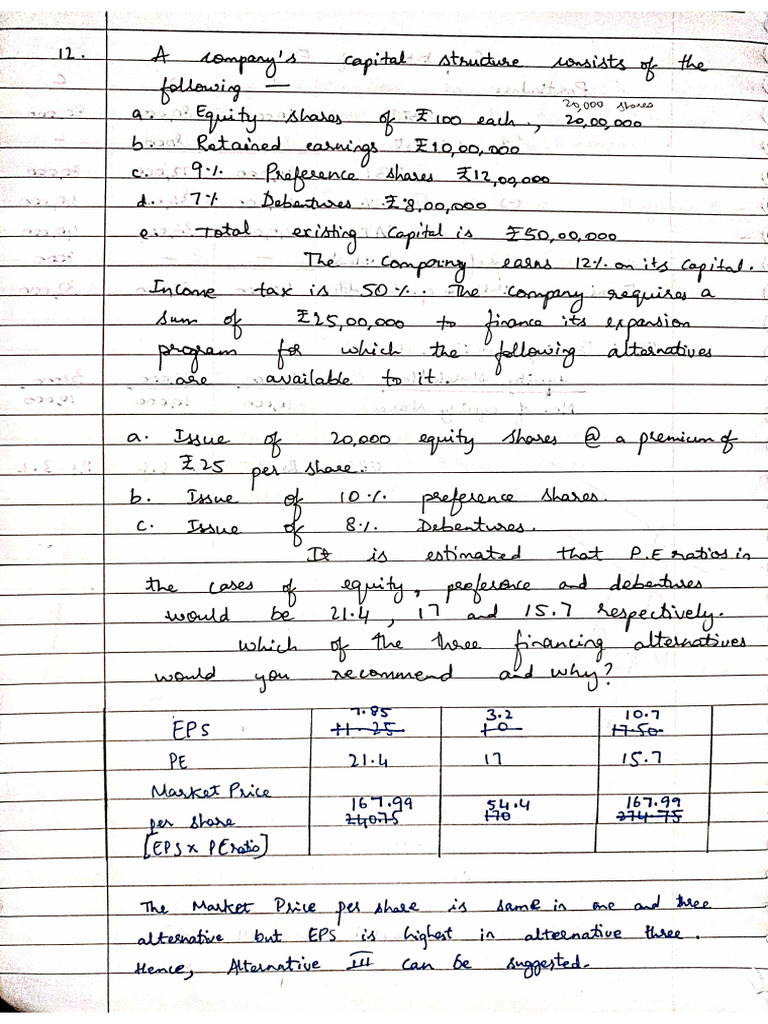 12. A company's capital structure consists of the
following —
20,000 shares
a. Equity shares of ₹100 each, 20,00,000
b. Retained earnings ₹10,00,000
c. 9% Preference shares ₹12,00,000
d. 7% Debentures ₹8,00,000
e. Total existing Capital is ₹50,00,000
The company earns 12% on its capital.
Income tax is 50%. The company requires a
sum of ₹25,00,000 to finance its expansion
program for which the following alternatives
are available to it.
a. Issue of 20,000 equity shares @ a premium of
₹25 per share.
b. Issue of 10% preference shares.
c. Issue of 8% Debentures.
It is estimated that P.E ratios in
the cases of equity, preference and debentures
would be 21.4, 17 and 15.7 respectively.
which of the three financing alternatives
would you recommend and why?
7.85 3.2 10.7
EPS 11.25 10 17.50
PE 21.4 17 15.7
Market Price
167.99 54.4 167.99
per share 240.75 170 274.75
[EPS x PE ratio]
The Market Price per share is same in one and three
alternative but EPS is highest in alternative three.
Hence, Alternative III can be suggested.